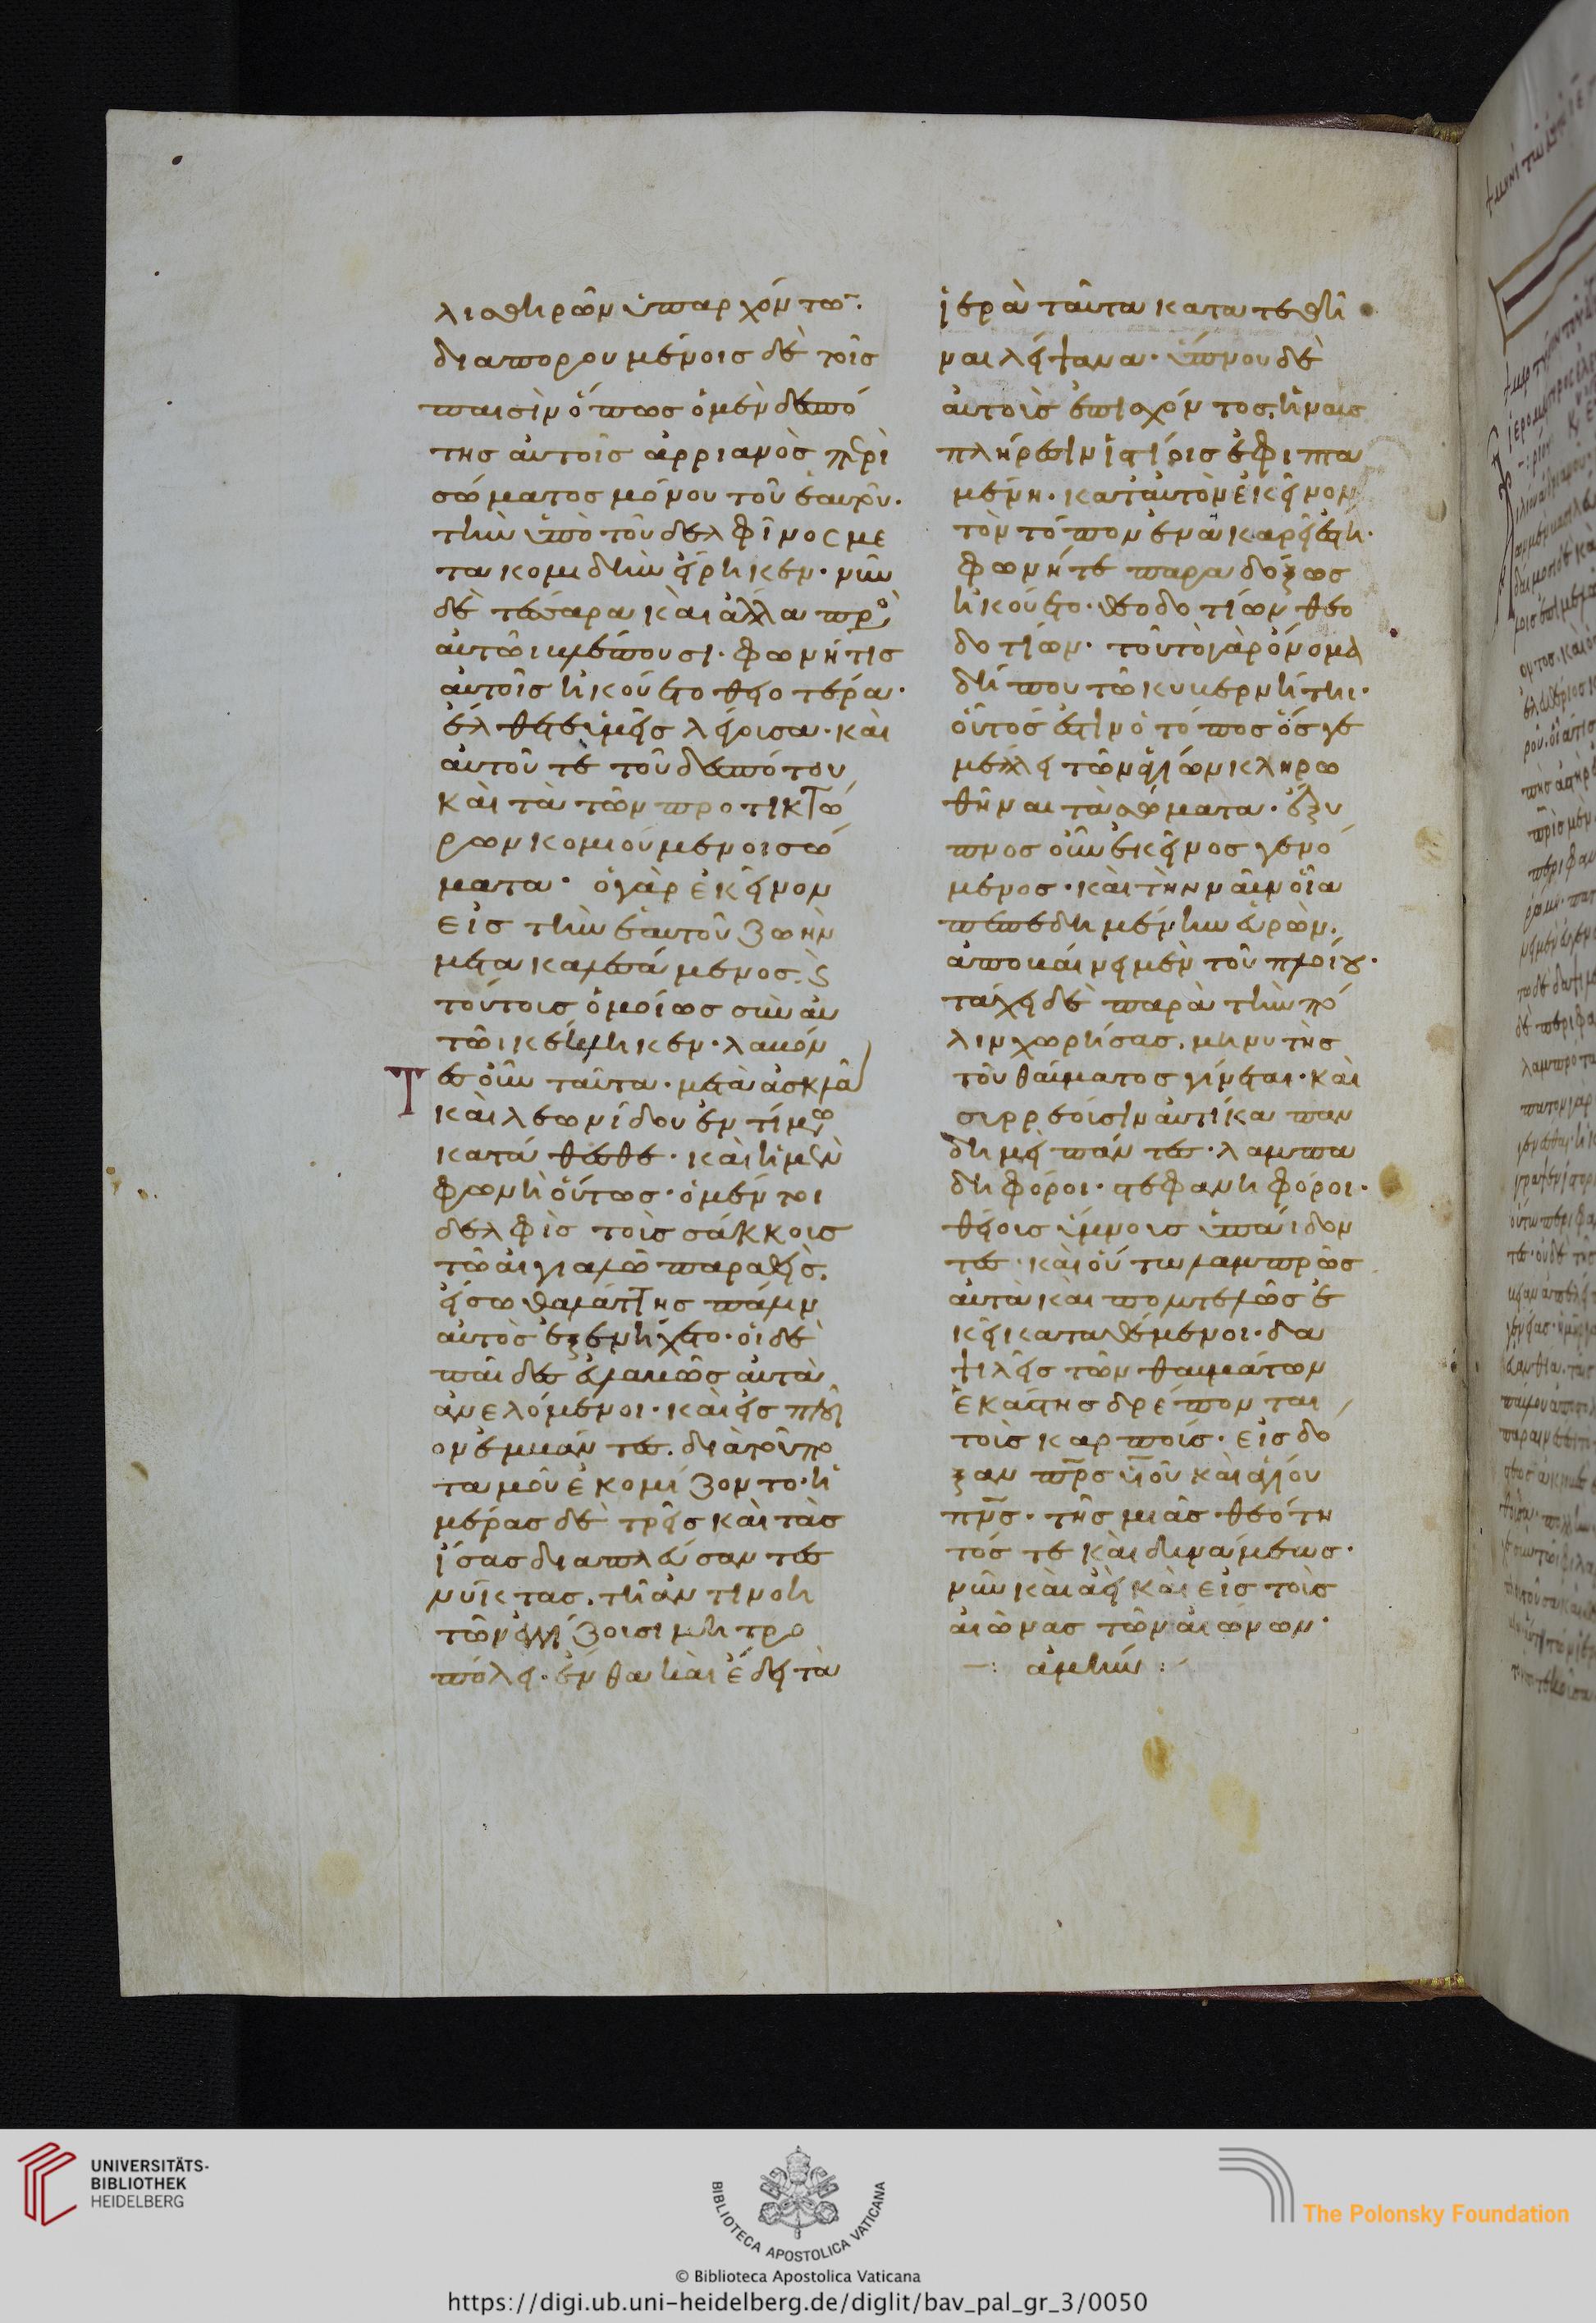 λιοθηρῶν ὑπαρχόντω̅·
διαπορουμένοις δὲ τοῖς
παισὶν ὅπως ὁ μὲν δεσπό
της αὐτοῖς ἀρριανὸς περὶ
σώματος μόνου τοῦ ἑαυτοῦ·
τὴν ὑπὸ τοῦ δελφῖνος με
τακομιδὴν εἴρηκεν· νῦν
δὲ τέσσαρα καὶ ἄλλα πρὸ
αὐτῶι βλέπουσι· φωνή τις
αὐτοῖς ἠκούετο θειοτέρα·
καὶ
αὐτοῦ τε τοῦ δεσπότου
καὶ τὰ τῶν προτικτώ
ρων κομιούμενοι σώ
ματα· ὁ γὰρ ἐκεῖνον
εἰς τὴν ἑαυτοῦ ζωὴν
μετακαλεσάμενος· ϛ
τούτοις ὁμοίως σὺν αὐ
τῶι κεκληκεν· λαβόν
Τες οὖν ταῦτα· μετὰ ἀσκλᾶ
καὶ λεωνίδου ἐν τίμω
κατάθεσθε· καὶ ἡ μὲν
φωνὴ οὕτως· ὁ μέν τοι
δελφὶς τοὺς σάκκους
τῶ αἰγιαλῶ παραθεὶς·
εἴσω θαλάττης πάλιν
αὐτὸς ἐξενήχετο· οἱ δὲ
παῖδες εὐλαβῶς αὐτὰ
ἀνελόμενοι· καὶ εἰς πλοῖ
ον ἐμβάντες· διὰ τοῦ πο
ταμοῦ ἐκομίζοντο· ἡ
μέρας δὲ τρεῖς καὶ τὰς
ἴσας διαπλεύσαντες
νύκτας· τῆ ἀντινοη
τῶν ἐγγίζουσι μητρο
πόλει· ἔνθα καὶ ἔδει τὰ
ἱερὰ ταῦτα κατατεθῆ
ναι λείψανα· ὕπνου δὲ
αὐτοῖς ἐπισχόντος·
πλήρεσιν ἱστίοις ἐφιπτα
μένη· κατ αὐτὸν ἐκεῖνον
τὸν τόπον ἐν ἀκαρεῖ ἔστη·
φωνή τε παραδόξως
ἠκούετο· θεοδοτίων θεο
δοτίων· τοῦτο γὰρ ὄνομα
δή που τῶ κυβερνήτηι·
οὗτός ἐστιν ὁ τόπος ὅς γε
μέλλει τῶν ἁγίων κληρω
θῆναι τὰ σώματα· ἔξυ
πνος οὖν ἐκεῖνος γενό
μενος· καὶ τὴν ναῦν οἷα
πεπεδημένην εὑρὼν·
ἀποβαίνει μὲν τοῦ πλοίου·
τάχει δὲ παρὰ τὴν πό
λιν χωρήσας· μηνυτὴς
τοῦ θαύματος γίνεται· καὶ
συρρέουσιν αὐτίκα παν
δημεὶ πάντες· λαμπα
δηφόροι· στεφανηφόροι·
θείοις ὕμνοις ὑπαίδον
τες· καὶ οὕτω λαμπρῶς
αὐτὰ καὶ πολυτελῶς ἐ
κεῖ καταθέμενοι· δα
ψιλεῖς τῶν θαυμάτων
ἑκάστης δρέπονται
τοὺς καρπούς· εἰς δό
ξαν π̅ρ̅ς υ̅ι̅οῦ καὶ ἁγίου
π̅ν̅ς· τῆς μιᾶς θεότη
τός τε καὶ δυνάμεως·
νῦν καὶ ἀεὶ καὶ εἰς τοὺς
αἰῶνας τῶν αἰώνων·
—: ἀμήν :—
UNIVERSITÄTS-
BIBLIOTHEK
HEIDELBERG
BIBLIOTECA APOSTOLICA VATICANA
The Polonsky Foundation
© Biblioteca Apostolica Vaticana
https://digi.ub.uni-heidelberg.de/diglit/bav_pal_gr_3/0050